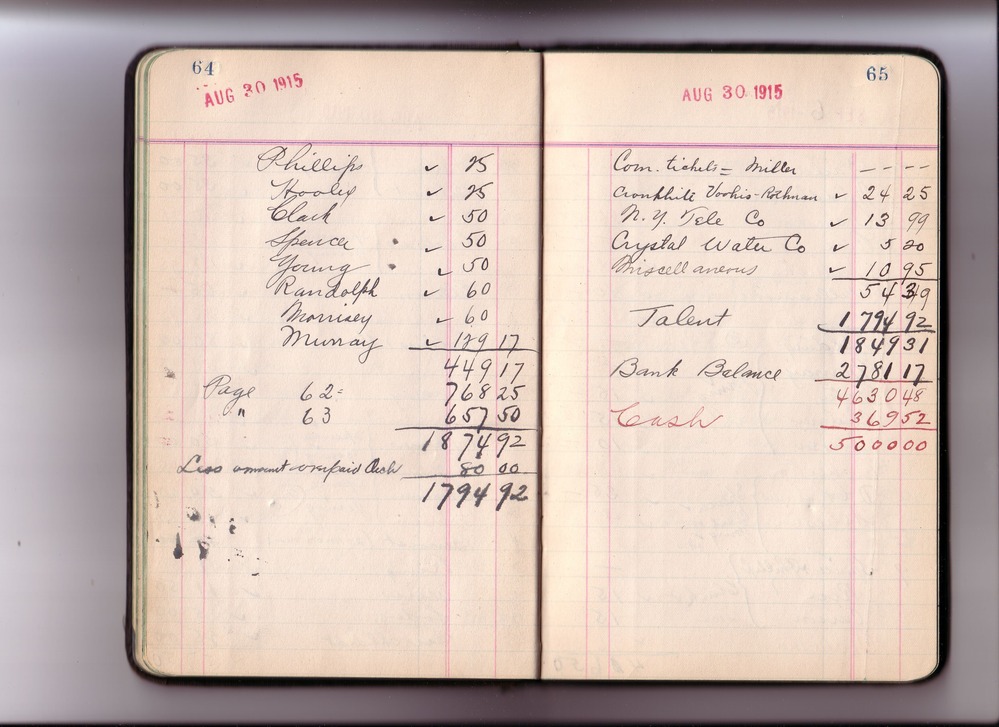 64
AUG 30 1915
Phillips ✓ 25
Hooley ✓ 25
Clark ✓ 50
Spencer ✓ 50
Young ✓ 50
Randolph ✓ 60
Morrisey ✓ 60
Murray ✓ 129 17
449 17
Page 62= 768 25
" 63 657 50
1874 92
Less amount overpaid Cash 80 00
1794 92
65
AUG 30 1915
Com. tickets = Miller – – – –
Cronkhite Rothman ✓ 24 25
N.Y. Tele Co ✓ 13 99
Crystal Water Co ✓ 5 20
Miscellaneous ✓ 10 95
54 39
Talent 1794 92
1849 31
Bank Balance 2781 17
4630 48
Cash 369 52
5000 00